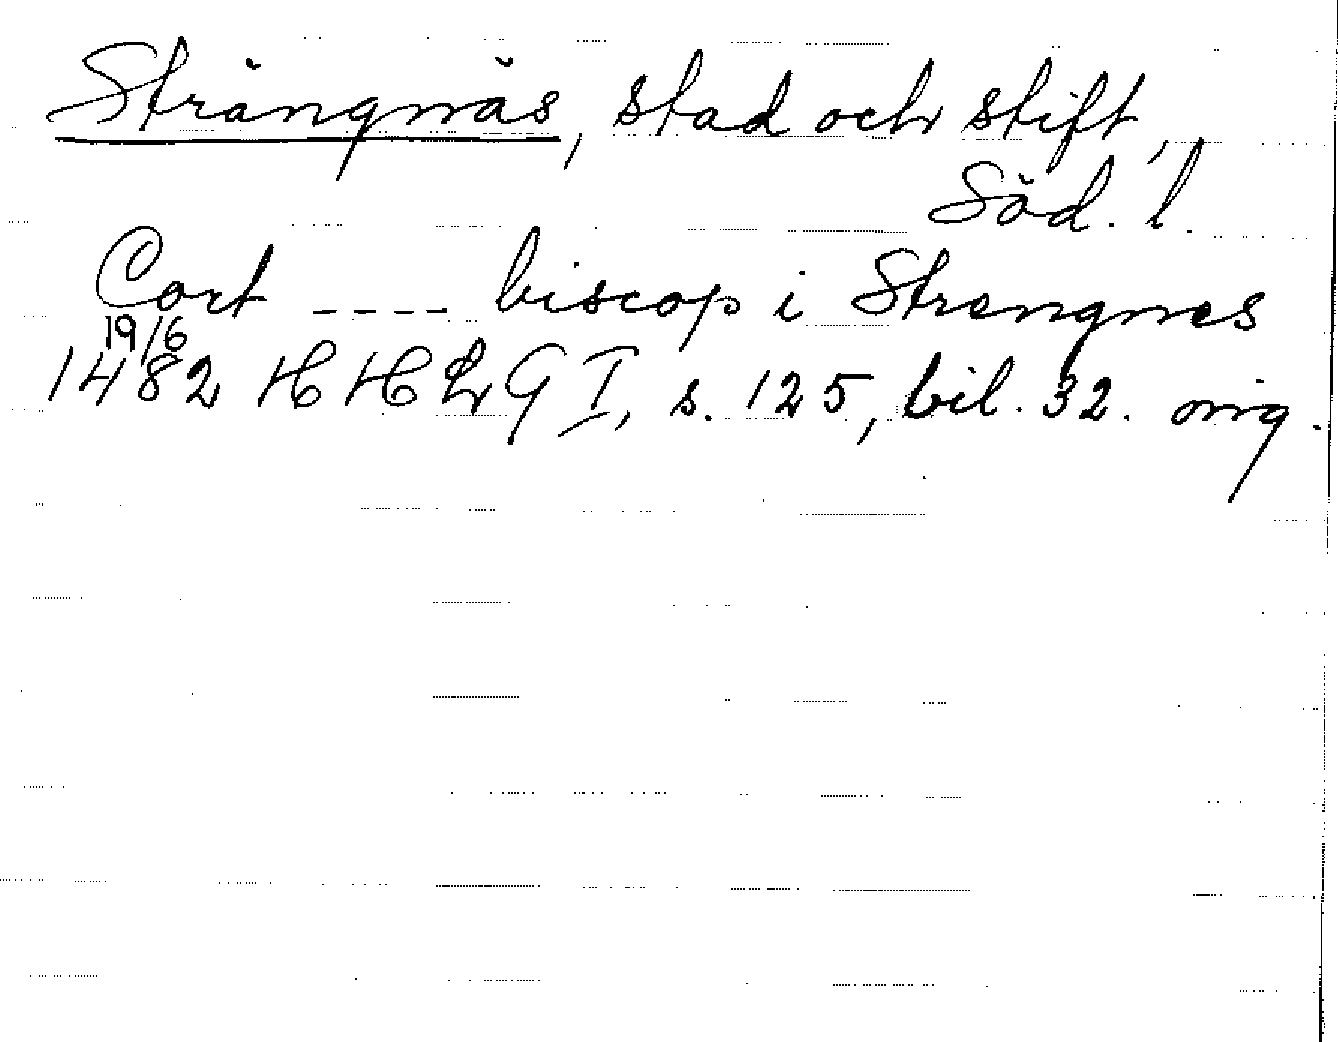 Strängnäs, stad och stift,
Söd. l.
Cort ---- biscop i Strengnes
19/6
1482 HH L G I, s. 125, bil. 32. orig.